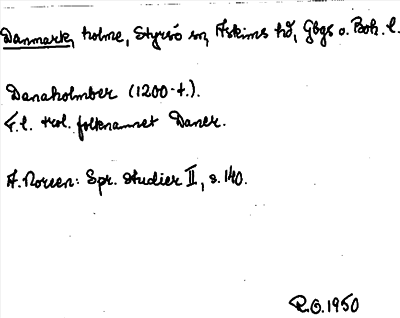 Danmark, holme, Styrsö sn, Askims hd, Gbgs o. Boh. l.
Danaholmber (1200-t.).
F.l. trol. folknamnet Daner.
A. Noreen: Spr. studier II, s. 140.
R.O. 1950